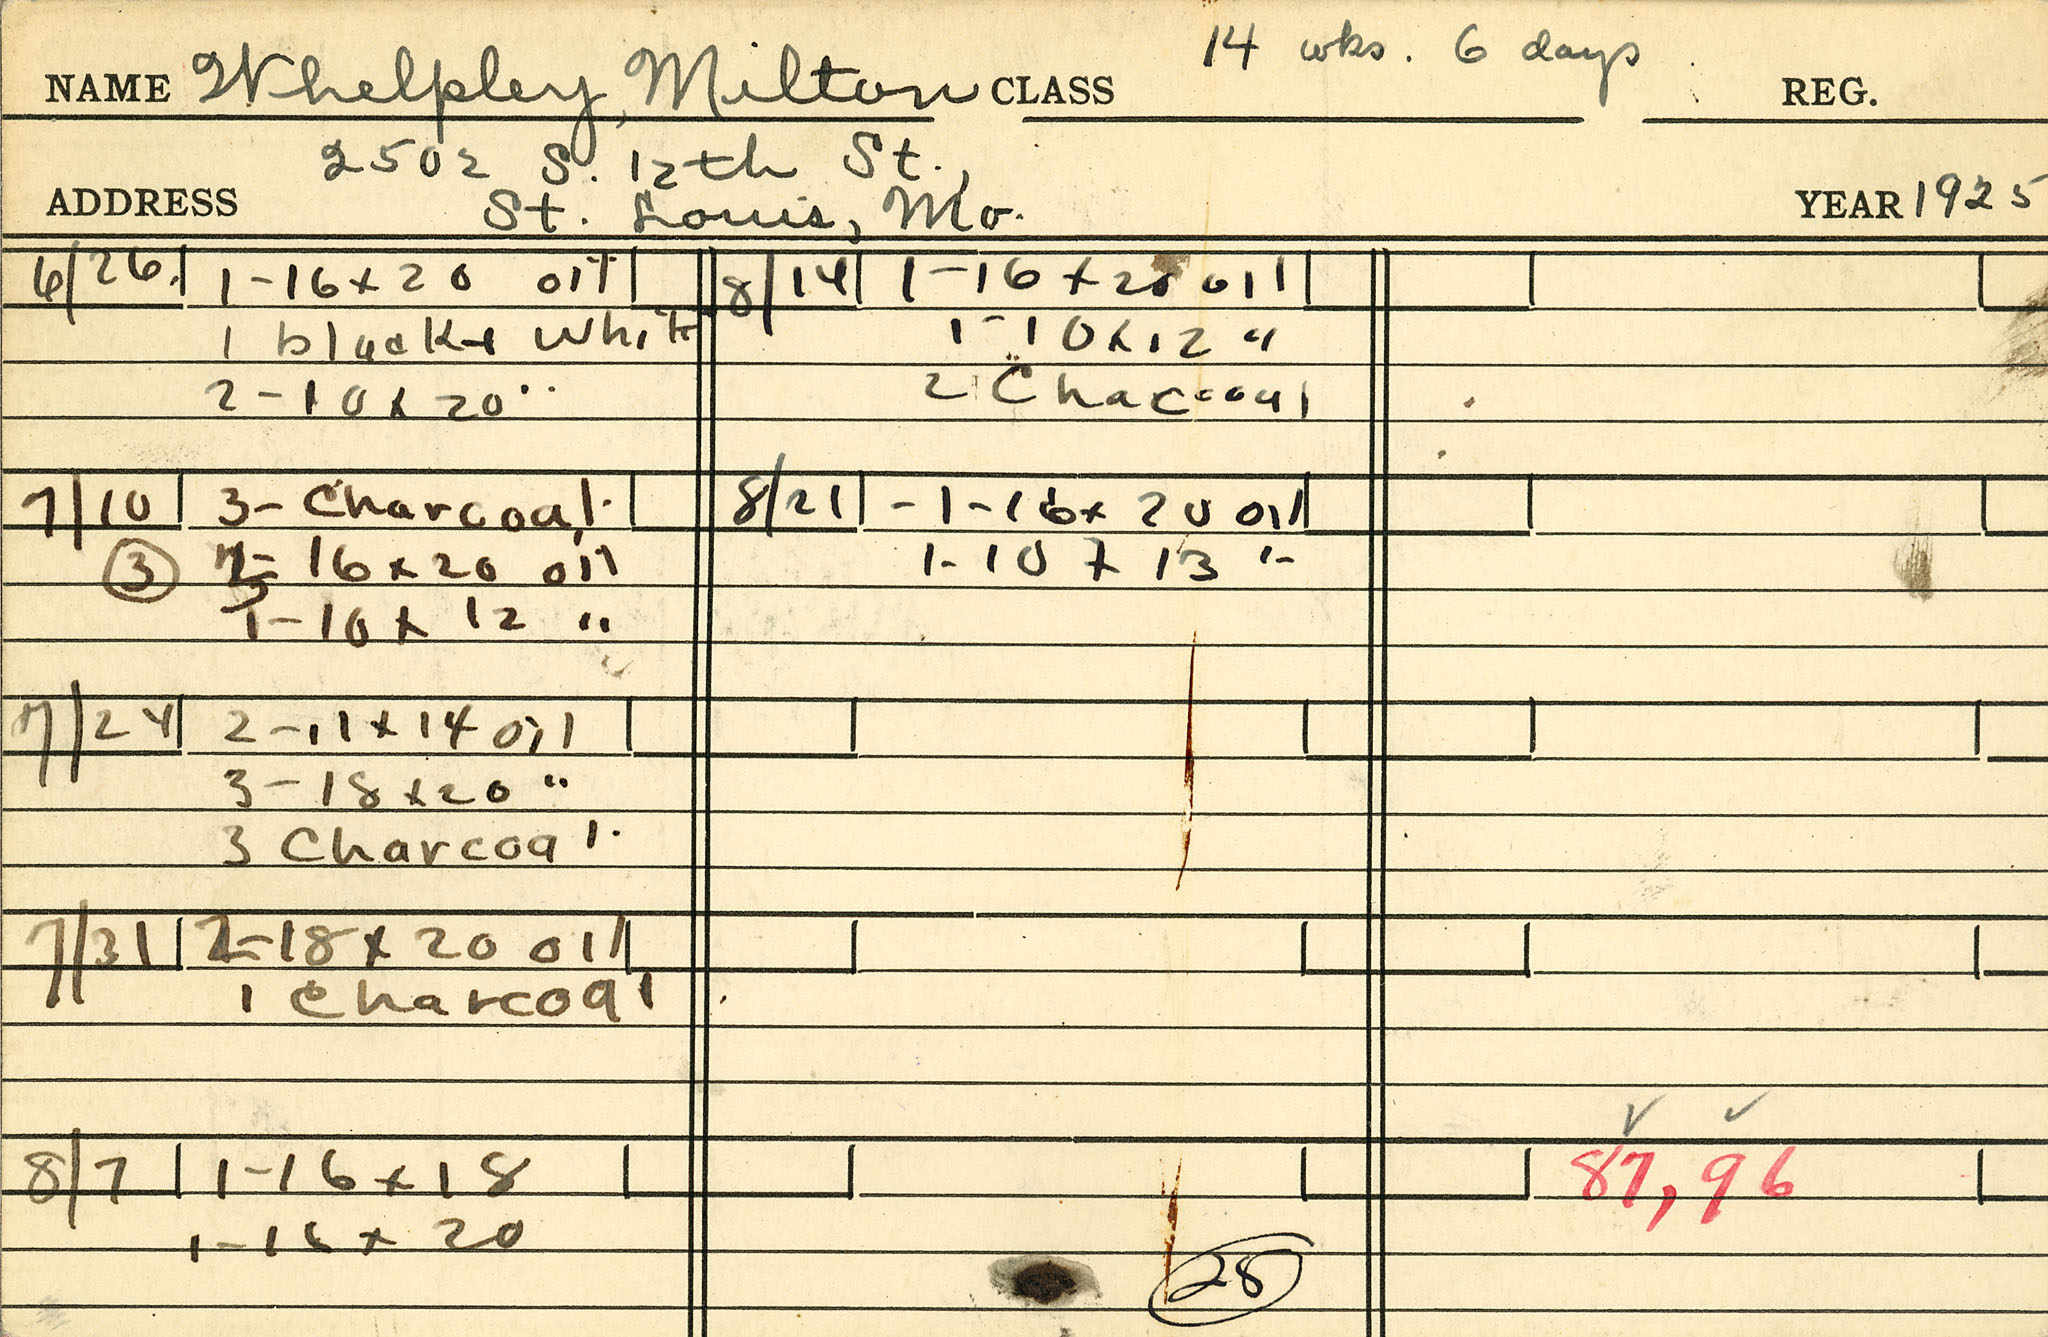 14 wks. 6 days
NAME Whelpley, Milton CLASS REG.
2502 S. 12th St.,
ADDRESS St. Louis, Mo. YEAR 1925
6/26. 1-16x20 oil
1 black + White
2-10x20 "
7/10 3- Charcoal.
③ 16x20 oil
1-10x12 "
7/24 2-11x14 oil
3-18x20 "
3 Charcoal.
7/31 2-18x20 oil
1 charcoal
8/7 1-16x18
1-16x20
8/14 1-16x20 oil
1-10x12 "
2 Charcoal
8/21 -1-16x20 oil
1-10x13 "
28
87, 96